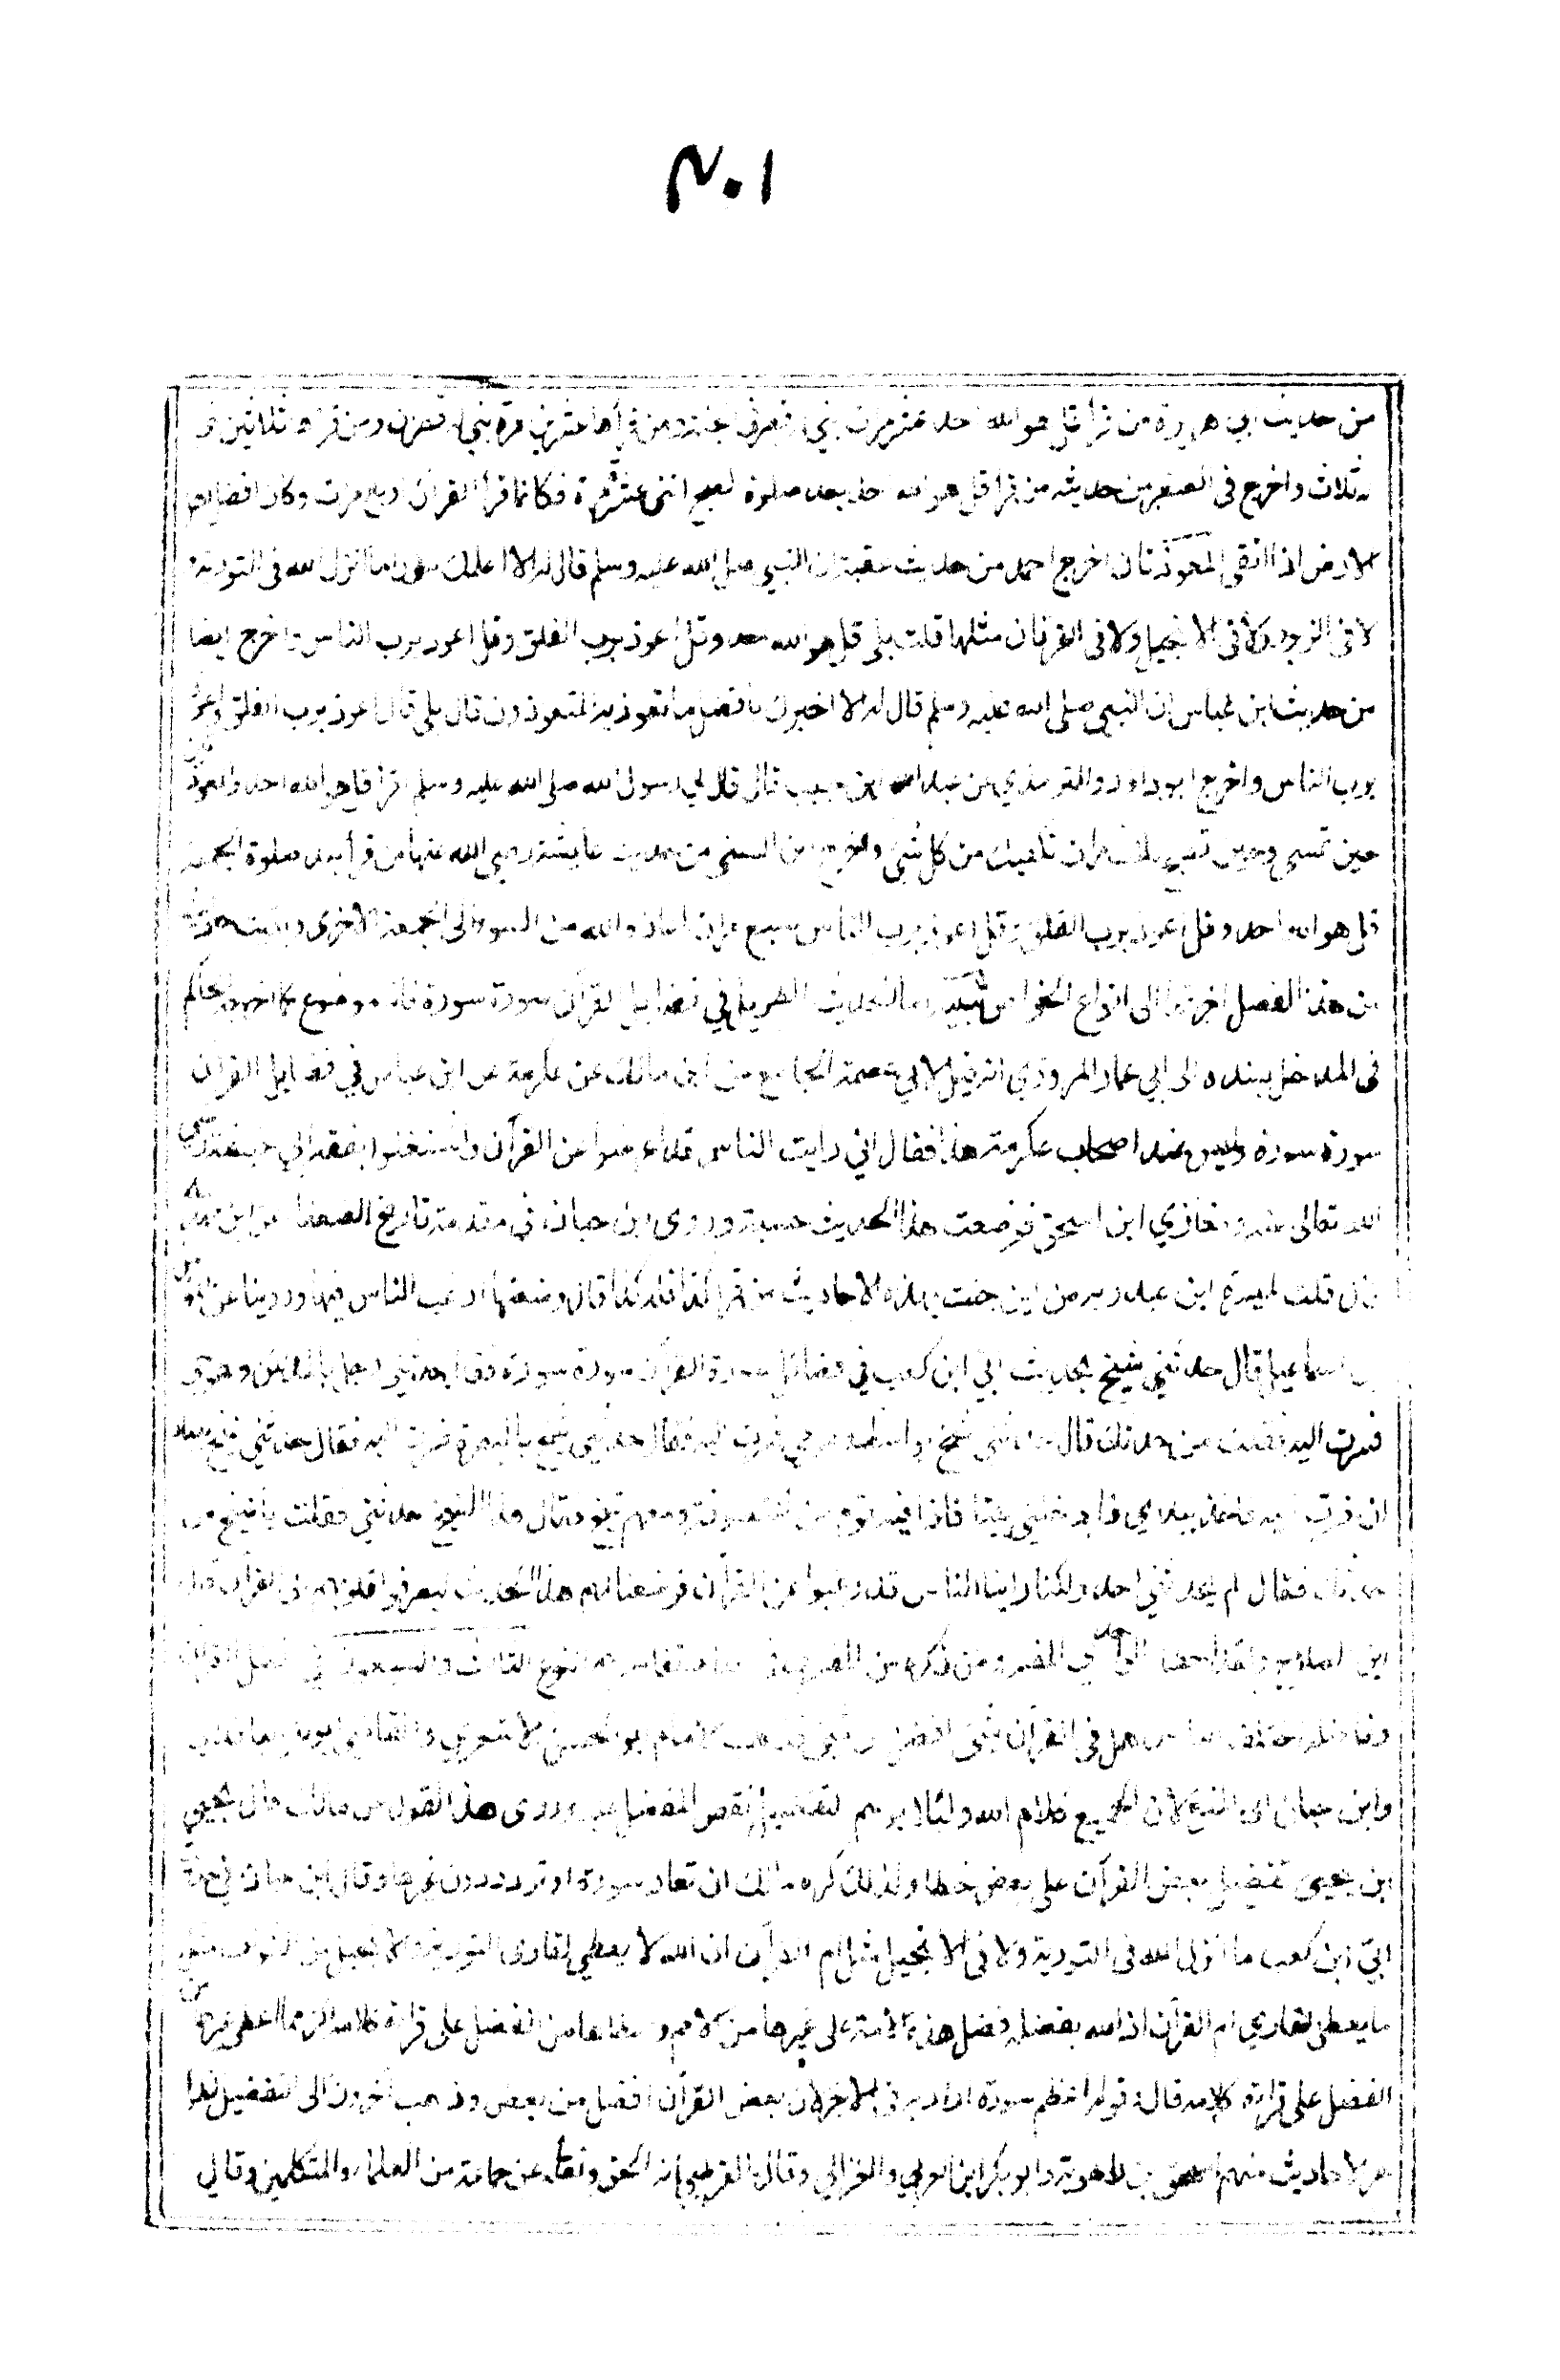 ٣٠١
من حديث ابي هريرة من قرأ قل هو الله احد عشر مرات بني له قصر في الجنة ومن قرأها عشرين مرة بني له قصران ومن قرأها ثلاثين
له ثلاث واخرج في الصغير من حديثه من قرأ قل هو الله احد بعد صلوة الصبح اثنى عشرة مرة فكانما قرأ القرآن اربع مرات وكان افضل
الارض اذا اتقى المعوذتان اخرج احمد من حديث عقبة ان النبي صلى الله عليه وسلم قال له الا اعلمك سورا ما انزل الله في التورية
لا في الزبور ولا في الانجيل ولا في الفرقان مثلها قلت بلى قل هو الله احد وقل اعوذ برب الفلق وقل اعوذ برب الناس واخرج ايضا
من حديث ابن عباس ان النبي صلى الله عليه وسلم قال له الا اخبرك بافضل ما تعوذ به المتعوذون قال بلى قال اعوذ برب الفلق واعوذ
برب الناس واخرج ابو داود والترمذي عن عبد الله ابن حبيب قال قال لي رسول الله صلى الله عليه وسلم اقرأ قل هو الله احد والمعوذتين
حين تمسي وحين تصبح ثلاث مرات تكفيك من كل شئ واخرج ابن السني من حديث عايشة رضي الله عنها من قرأ بعد صلوة الجمعة
قل هو الله احد وقل اعوذ برب الفلق وقل اعوذ برب الناس سبع مرات اعاذه الله من السوء الى الجمعة الاخرى وبقيت
من هذا الفصل اخرتها الى انواع الخواص تنبيه اما الحديث الطويل في فضايل القرآن سورة سورة فانه موضوع كما اخرج الحاكم
في المدخل بسنده الى ابي عمار المروزي انه قيل لابي عصمة الجامع من اين مالك عن عكرمة عن ابن عباس في فضايل القرآن
سورة سورة وليس عند اصحاب عكرمة هذا فقال اني رايت الناس قد اعرضوا عن القرآن واشتغلوا بفقه ابي حنيفة رضي
الله تعالى عنه ومغازي ابن اسحق فوضعت هذا الحديث حسبة وروى ابن حبان في مقدمة تاريخ الضعفا عن ابن مهدي
قال قلت لميسرة ابن عبد ربه من اين جئت بهذه الاحاديث من قرأ كذا فله كذا قال وضعتها ارغب الناس فيها وروينا عن المؤمل
بن اسماعيل قال حدثني شيخ بحديث ابي ابن كعب في فضائل سور القرآن سورة سورة فقال حدثني رجل بالمداين وهو حي
فصرت اليه فقلت من حدثك قال حدثني شيخ بواسط وهو حي فصرت اليه فقال حدثني شيخ بالبصرة فصرت اليه فقال حدثني شيخ بعبادان
ان فصرت اليه فاخذ بيدي فادخلني بيتا فاذا فيه قوم من المتصوفة ومعهم شيخ فقال هذا الشيخ حدثني فقلت يا شيخ من
حدثك فقال لم يحدثني احد ولكنا راينا الناس قد رغبوا عن القرآن فوضعنا لهم هذا الحديث ليصرفوا قلوبهم الى القرآن قال
ابن الصلاح ولقد اخطأ الواحدي المفسر ومن ذكره من المفسرين في ايداعه تفاسيرهم النوع الثالث والسبعون في افضل القرآن
وفاضله اختلف الناس هل في القرآن شئ افضل من شئ فذهب الامام ابو الحسن الاشعري والقاضي ابو بكر الباقلاني
وابن حبان الى المنع لان الجميع كلام الله ولئلا يوهم التفضيل نقص المفضل عليه وروى هذا القول عن مالك قال يحيى
ابن يحيى تفضيل بعض القرآن على بعض خطا ولذلك كره مالك ان تعاد سورة او تردد دون غيرها وقال ابن حبان في حديث
ابي ابن كعب ما انزل الله في التورية ولا في الانجيل مثل ام القرآن ان الله لا يعطي لقارئ التورية والانجيل من الثواب مثل
ما يعطى لقاري ام القرآن اذ الله بفضله فضل هذه الامة على غيرها من الامم واعطاها من الفضل على قراءة كلامه اكثر مما اعطى غيرها من
الفضل على قراءة كلامه قال وقوله اعظم سورة اراد به في الاجر لا ان بعض القرآن افضل من بعض وذهب آخرون الى التفضيل
الاحاديث منهم اسحق بن راهوية وابو بكر ابن العربي والغزالي وقال القرطبي انه الحق ونقله عن جماعة من العلماء والمتكلمين وقال